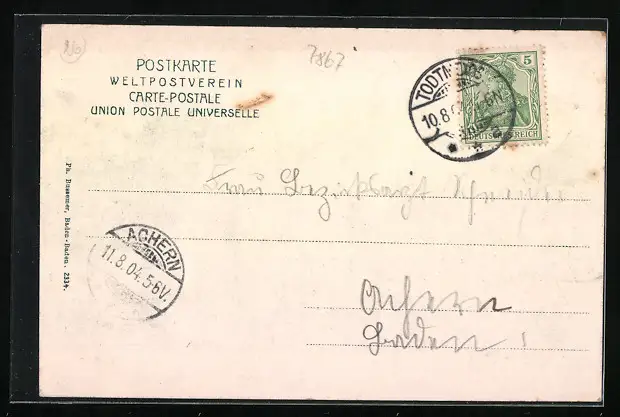 220
7867
POSTKARTE
WELTPOSTVEREIN
CARTE-POSTALE
UNION POSTALE UNIVERSELLE
5
DEUTSCHES REICH
10.8.
Frau Bezirksarzt
Ph. Bussemer, Baden-Baden. 2334.
ACHERN
11.8.04.5-6V.
Achern
Baden